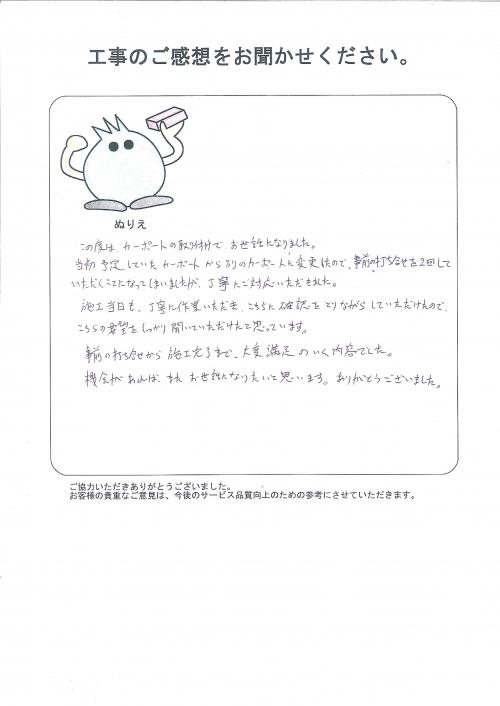 工事のご感想をお聞かせください。
ぬりえ
この度は、カーポートの取り付けで、お世話になりました。
当初予定していたカーポートから別のカーポートに変更したので、事前の打ち合せを2回して
いただくことになってしまいましたが、丁寧にご対応いただきました。
施工当日も、丁寧に作業いただき、こちらに確認をとりながらしていただけたので、
こちらの要望をしっかり聞いていただけたと思っています。
事前の打ち合せから施工完了まで、大変満足のいく内容でした。
機会があれば、またお世話になりたいと思います。ありがとうございました。
ご協力いただきありがとうございました。
お客様の貴重なご意見は、今後のサービス品質向上のための参考にさせていただきます。